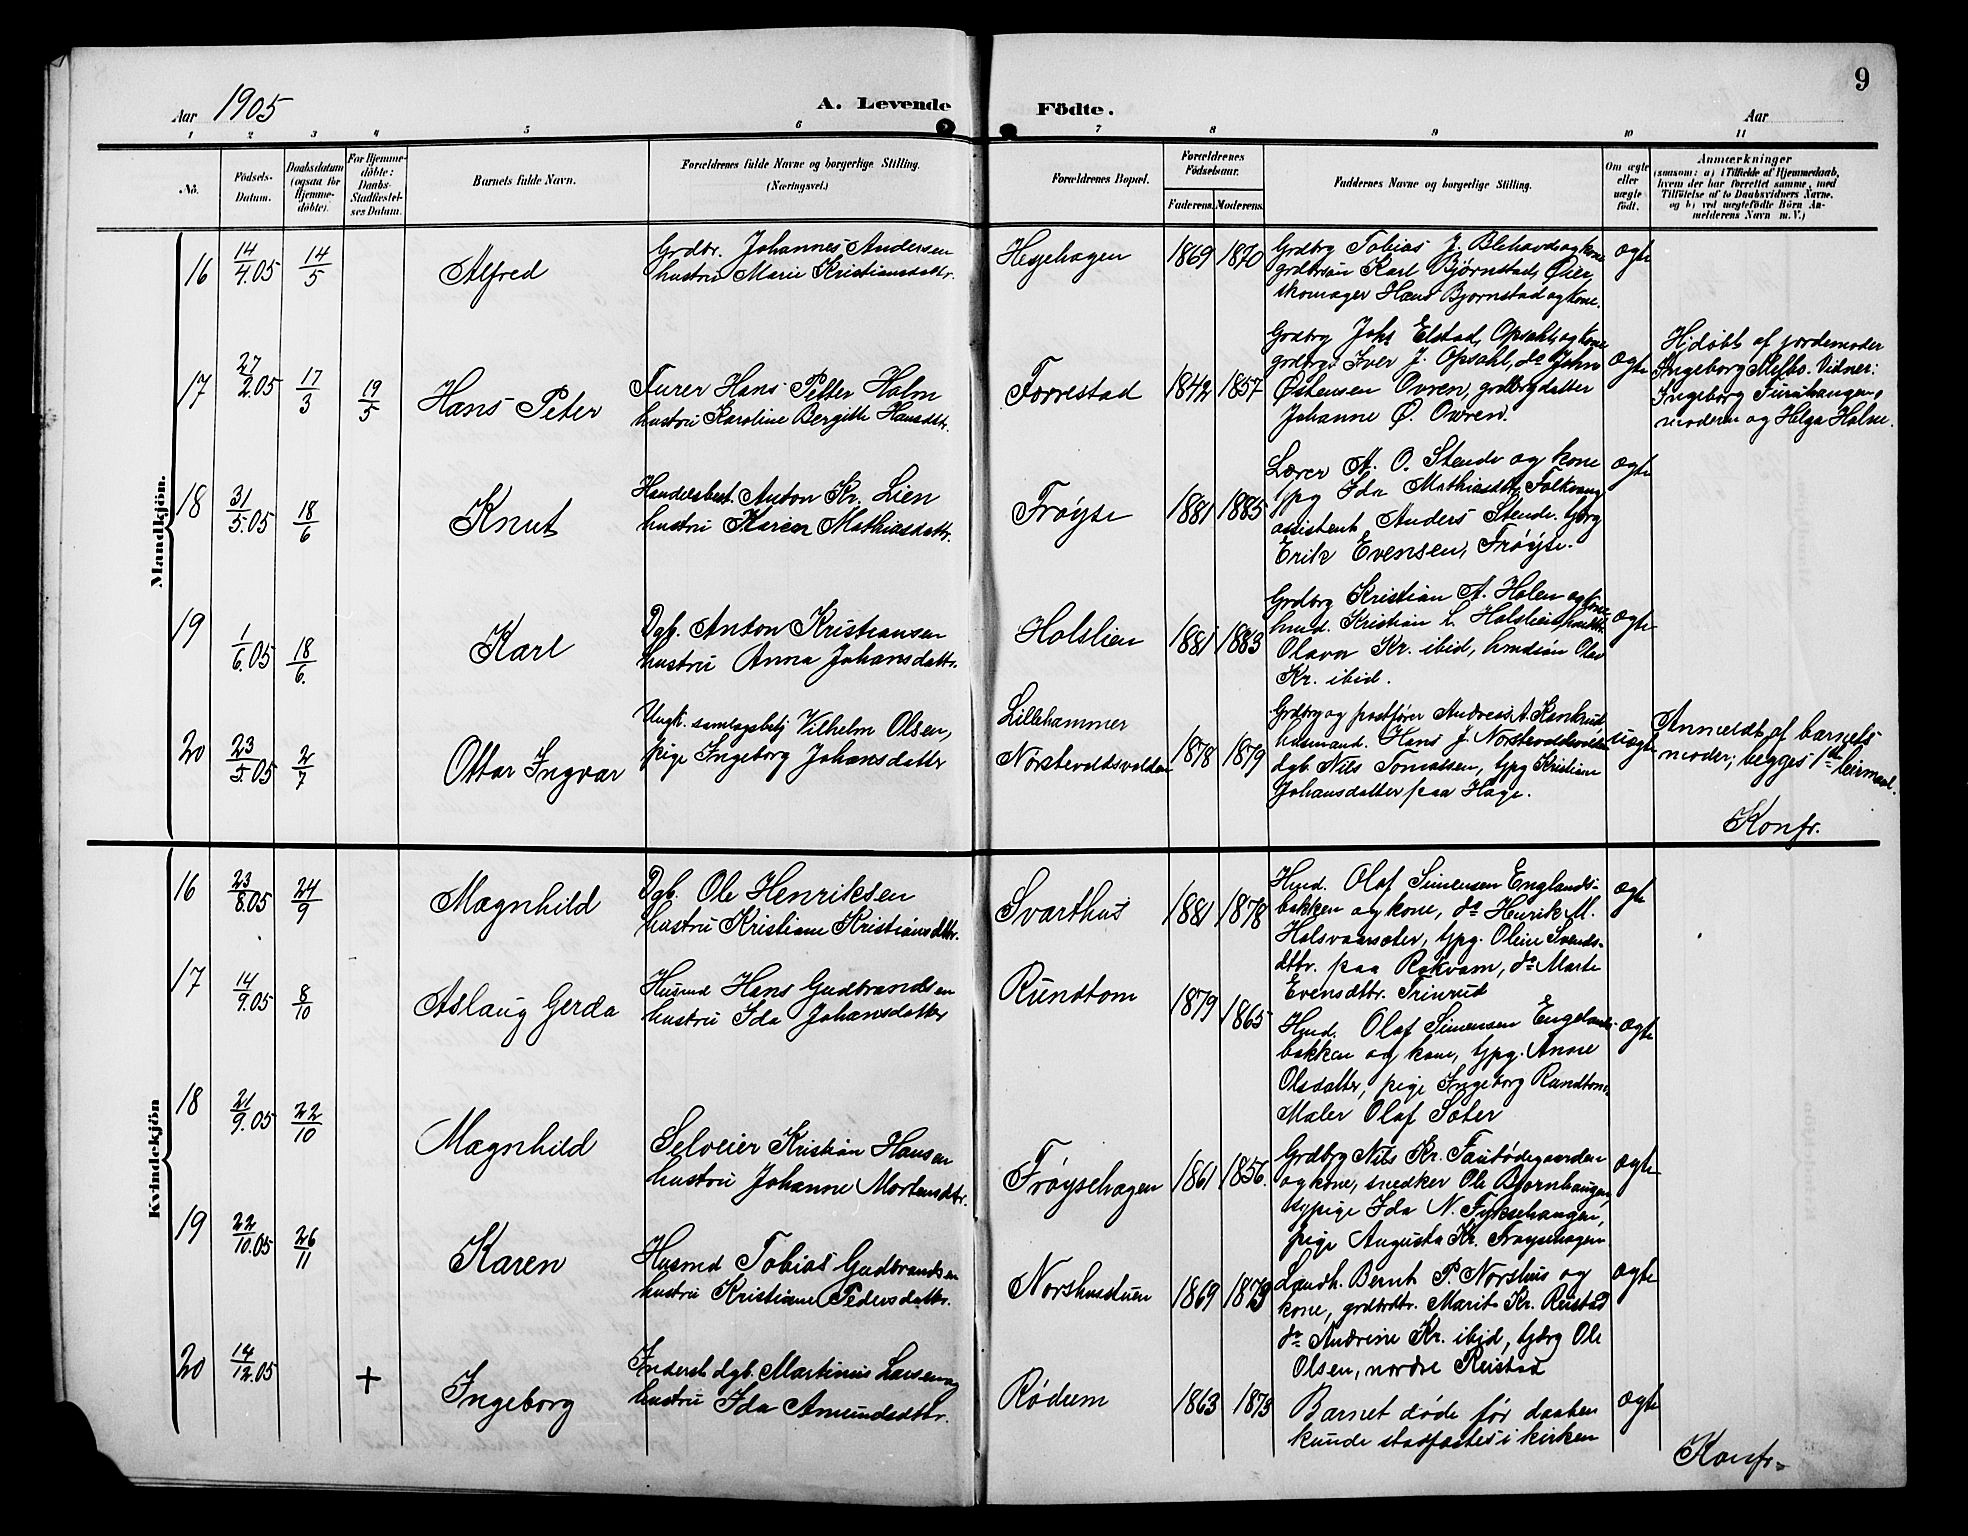 9
Aar 1905
A. Levende Födte.
Aar
1 2 3 4 5 6 7 8 9 10 11
No.
Födsels-
Datum.
Daabsdatum
(ogsaa for
Hjemme-
döbte).
For Hjemme-
döbte:
Daabs-
Stadfæstel-
ses Datum.
Barnets fulde Navn.
Forældrenes fulde Navne og borgerlige Stilling.
(Næringsvei.)
Forældrenes Bopæl.
Forældrenes
Födselsaar.
Faderens. Moderens.
Faddernes Navne og borgerlige Stilling.
Om ægte
eller
uægte
födt.
Anmærkninger
(saasom: a) i Tilfælde af Hjemmedaab,
hvem der har forrettet samme, med
Tilföielse af to Daabsvidners Navne,
og b) ved uægtefödte Börn An-
melderens Navn m. V.)
Mandkjön.
16 14/4.05 14/5
Alfred
Grdbr. Johannes Andersen
hustru Marie Kristiansdtr.
Hegehagen 1869 1870
Grdbrg Tobias J. Blehavde og kone
grdbrsön Karl Bjørnstad, Øier,
skomager Hans Bjørnstad og kone.
ægte
17 27/2.05 17/3 19/5
Hans Peter
Furer Hans Petter Holm
hustru Karoline Bergitte Hansdtr.
Forrestad 1842 1857
Grdbrg Johs Elstad, Opsahl, og kone
grdbrgs Iver J. Opsahl, do John
Østensen Ovren, grdbrgdatter
Johanne Ø. Ovren.
ægte
Hjdøbt af jordemoder
Ingeborg Melbo. Vidner:
Ingeborg Furuhaugen,
moderen og Helga Holm.
18 31/5.05 18/6
Knut
Handelsbest. Anton Kr. Lien
hustru Karen Mathiasdattr.
Frøyse 1881 1885
Lærer A. O. Stende og kone
pg Ida Mathiasdtr, Folkvang
assistent Anders Stende. tjerg
Erik Evensen, Frøyse.
ægte
19 1/6.05 18/6.
Karl
Dgb. Anton Kristiansen
hustru Anna Johansdattr.
Holslien 1881 1883
Grdbrg Kristian A. Holen og kone
hmd. Kristian L. Holslien, hmdttr.
Olava Kr. ibid, hmdsön Olav
Kr. ibid.
ægte
20 23/5.05 2/7
Ottar Ingvar
Ungk. samlagsbetj Vilhelm Olsen,
pige Ingeborg Johansdatter
Lillehammer
Nørstevoldsvolden 1878 1879
Grdbrg og postfører Andreas A. Kankrud
husmand. Hans J. Nørstevoldsvolden
dgb. Nils Tomassen, tjpg Kristine
Johansdatter paa Hage.
uægte
Anmeldt af barnets
moder; begges 1ste leiermaal.
Konfr.
Kvindekjön
16 23/8.05 24/9
Magnhild
Dgb. Ole Henriksen
hustru Kristiane Kristiansdttr.
Svarthus 1881 1878
Hmd. Olaf Simensen Englands-
bakken og kone, do Henrik M.
Holsvaarsæter, tjpg. Oline Svends-
dttr. paa Rokvam, do Marte
Evensdttr. Trinrud
ægte
17 14/9.05 8/10
Aslaug Gerda
Husmd Hans Gudbrandsen
hustru Ida Johansdatter
Rundtom 1879 1865
Hmd. Olaf Simensen Englands-
bakken og kone, tjpg. Anne
Olsdatter, pige Ingeborg Rundtom
Maler Olaf Sæter
ægte
18 21/9.05 22/10
Magnhild
Selveier Kristian Hansen
hustru Johanne Mortensdtr.
Frøysehagen 1861 1856.
Grdbrg Nils Kr. Fautødegaarden
og kone, snedker Ole Bjørnhaugen,
sypige Ida N. Fyksehaugen,
pige Augusta Kr. Frøysehagen
ægte
19 22/10.05 26/11
Karen
Husmd Tobias Gudbrandsen
hustru Kristiane Pedersdattr.
Norshusstuen 1869 1879
Landh. Bernt P. Norshus og
kone, grdbrdtr. Marit Kr. Reistad
do Andrine Kr. ibid, tjerg Ole
Olsen, nordre Reistad
ægte
20 14/12.05 +
Ingeborg
Inderst dgb. Martinus Larsen og
hustru Ida Amundsdttr.
Rødum 1863 1873
Barnet døde før daaben
kunde stadfæstes i kirken
ægte
Konfr.